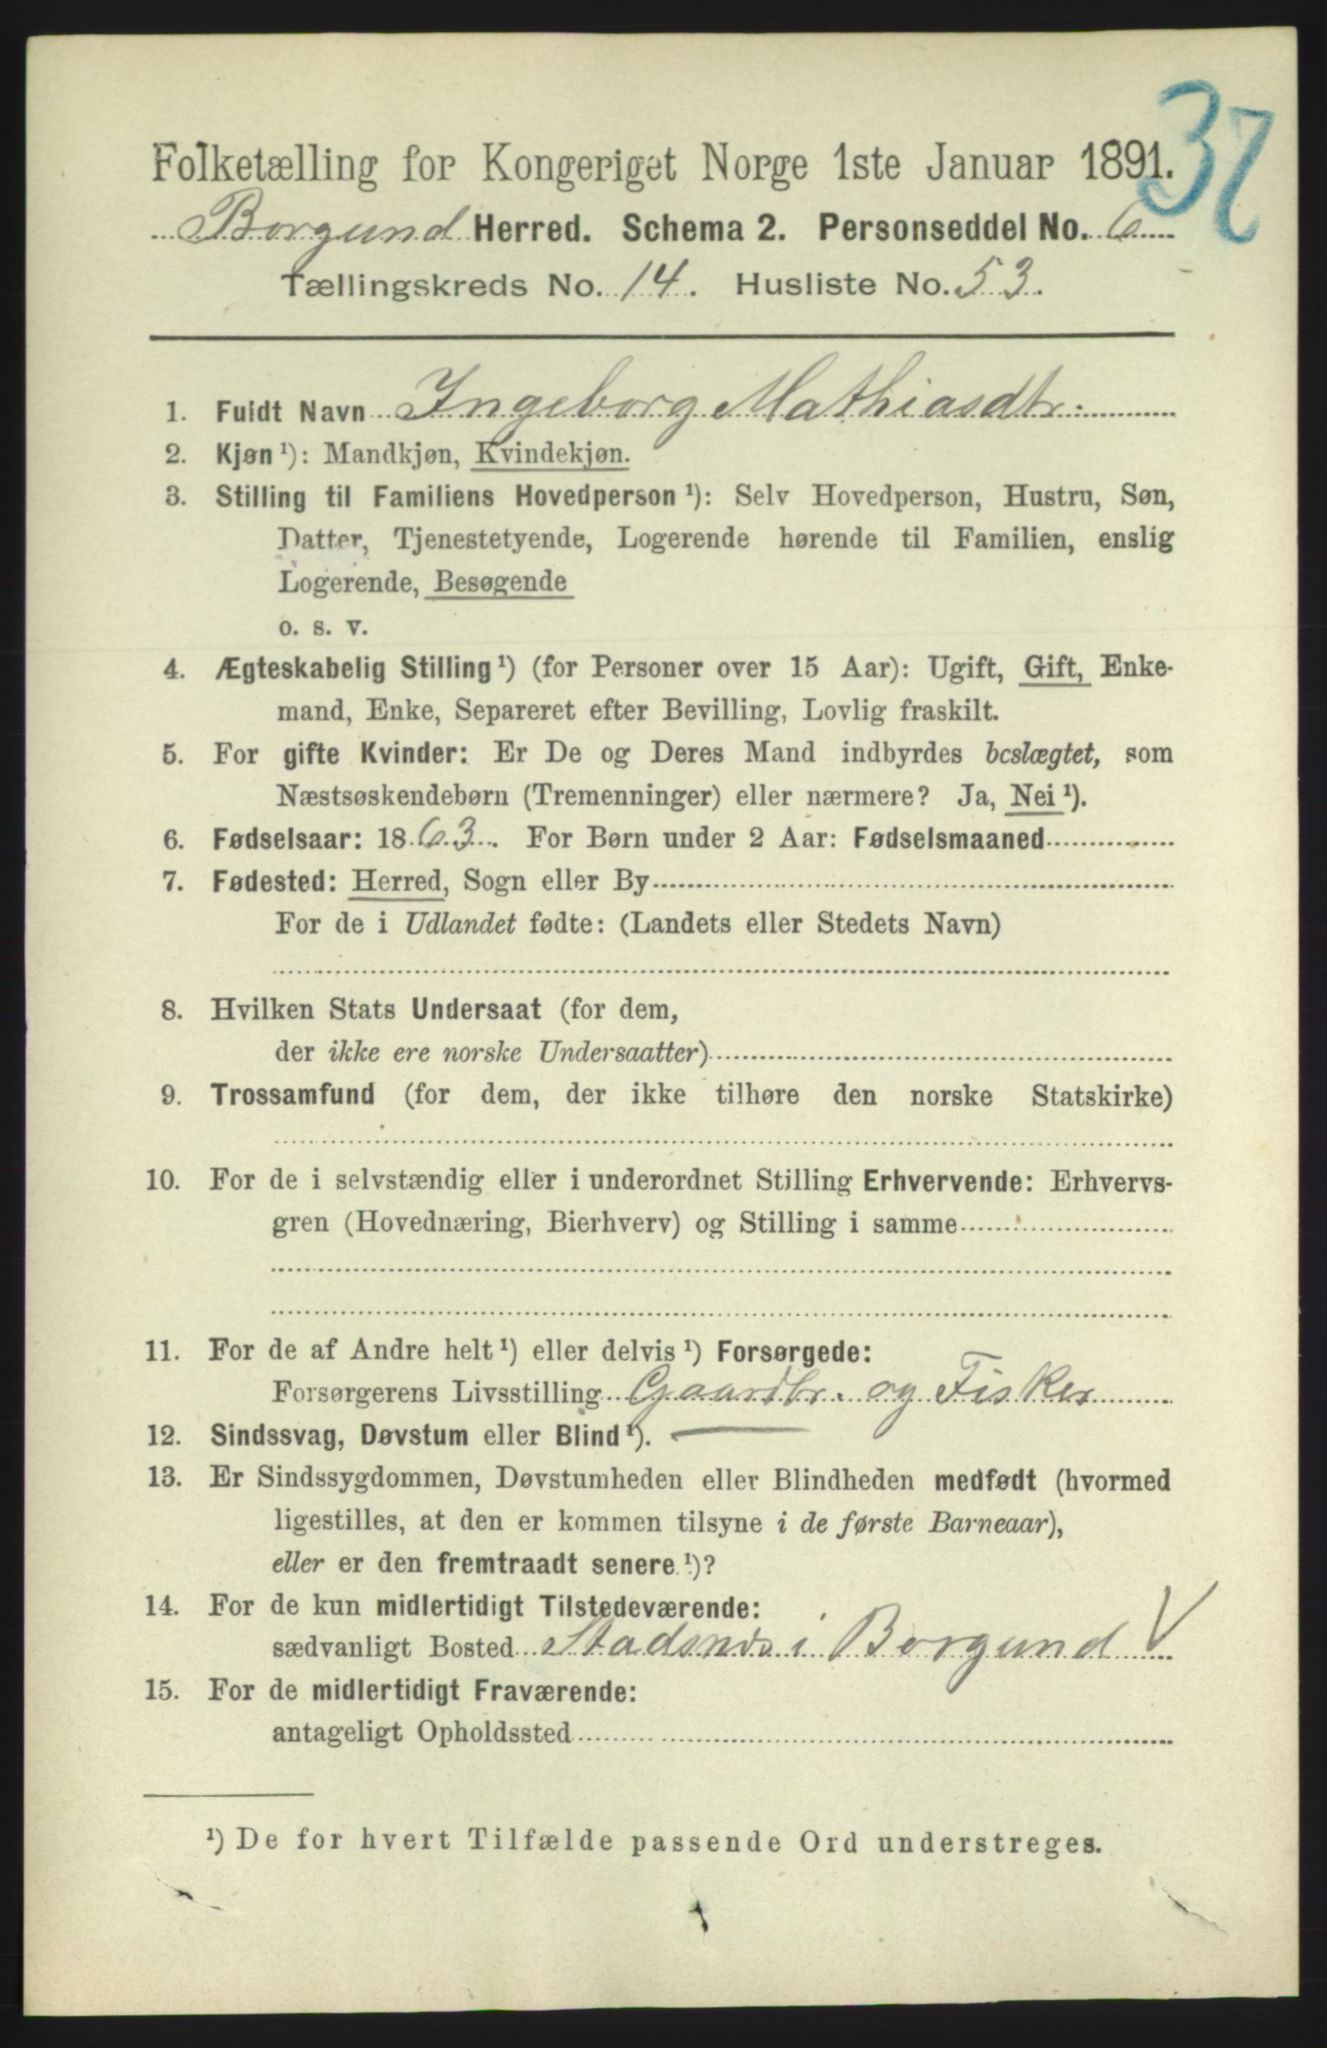 37
Folketælling for Kongeriget Norge 1ste Januar 1891.
Borgund Herred. Schema 2. Personseddel No. 6
Tællingskreds No. 14. Husliste No. 53.
1. Fuldt Navn Ingeborg Mathiasdtr.
2. Kjøn¹): Mandkjøn, Kvindekjøn.
3. Stilling til Familiens Hovedperson¹): Selv Hovedperson, Hustru, Søn,
Datter, Tjenestetyende, Logerende hørende til Familien, enslig
Logerende, Besøgende
o. s. v.
4. Ægteskabelig Stilling¹) (for Personer over 15 Aar): Ugift, Gift, Enke-
mand, Enke, Separeret efter Bevilling, Lovlig fraskilt.
5. For gifte Kvinder: Er De og Deres Mand indbyrdes beslægtet, som
Næstsøskendebørn (Tremenninger) eller nærmere? Ja, Nei¹).
6. Fødselsaar: 1863. For Børn under 2 Aar: Fødselsmaaned
7. Fødested: Herred, Sogn eller By
For de i Udlandet fødte: (Landets eller Stedets Navn)
8. Hvilken Stats Undersaat (for dem,
der ikke ere norske Undersaatter)
9. Trossamfund (for dem, der ikke tilhøre den norske Statskirke)
10. For de i selvstændig eller i underordnet Stilling Erhvervende: Erhvervs-
gren (Hovednæring, Bierhverv) og Stilling i samme
11. For de af Andre helt¹) eller delvis¹) Forsørgede:
Forsørgerens Livsstilling Gaardbr. og Fisker
12. Sindssvag, Døvstum eller Blind¹).
13. Er Sindssygdommen, Døvstumheden eller Blindheden medfødt (hvormed
ligestilles, at den er kommen tilsyne i de første Barneaar),
eller er den fremtraadt senere¹)?
14. For de kun midlertidigt Tilstedeværende:
sædvanligt Bosted Stadsnes i Borgund V
15. For de midlertidigt Fraværende:
antageligt Opholdssted
¹) De for hvert Tilfælde passende Ord understreges.